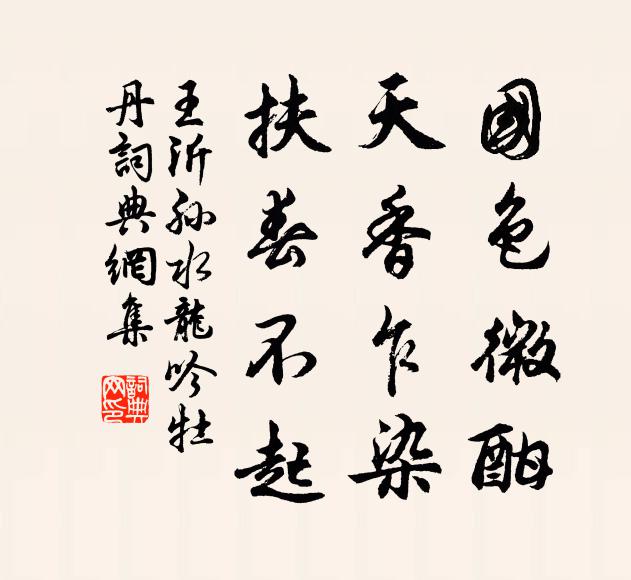 國色微酣
天香乍染
扶春不起
王沂孙水龍吟牡
丹詞典網集
詞典
网印